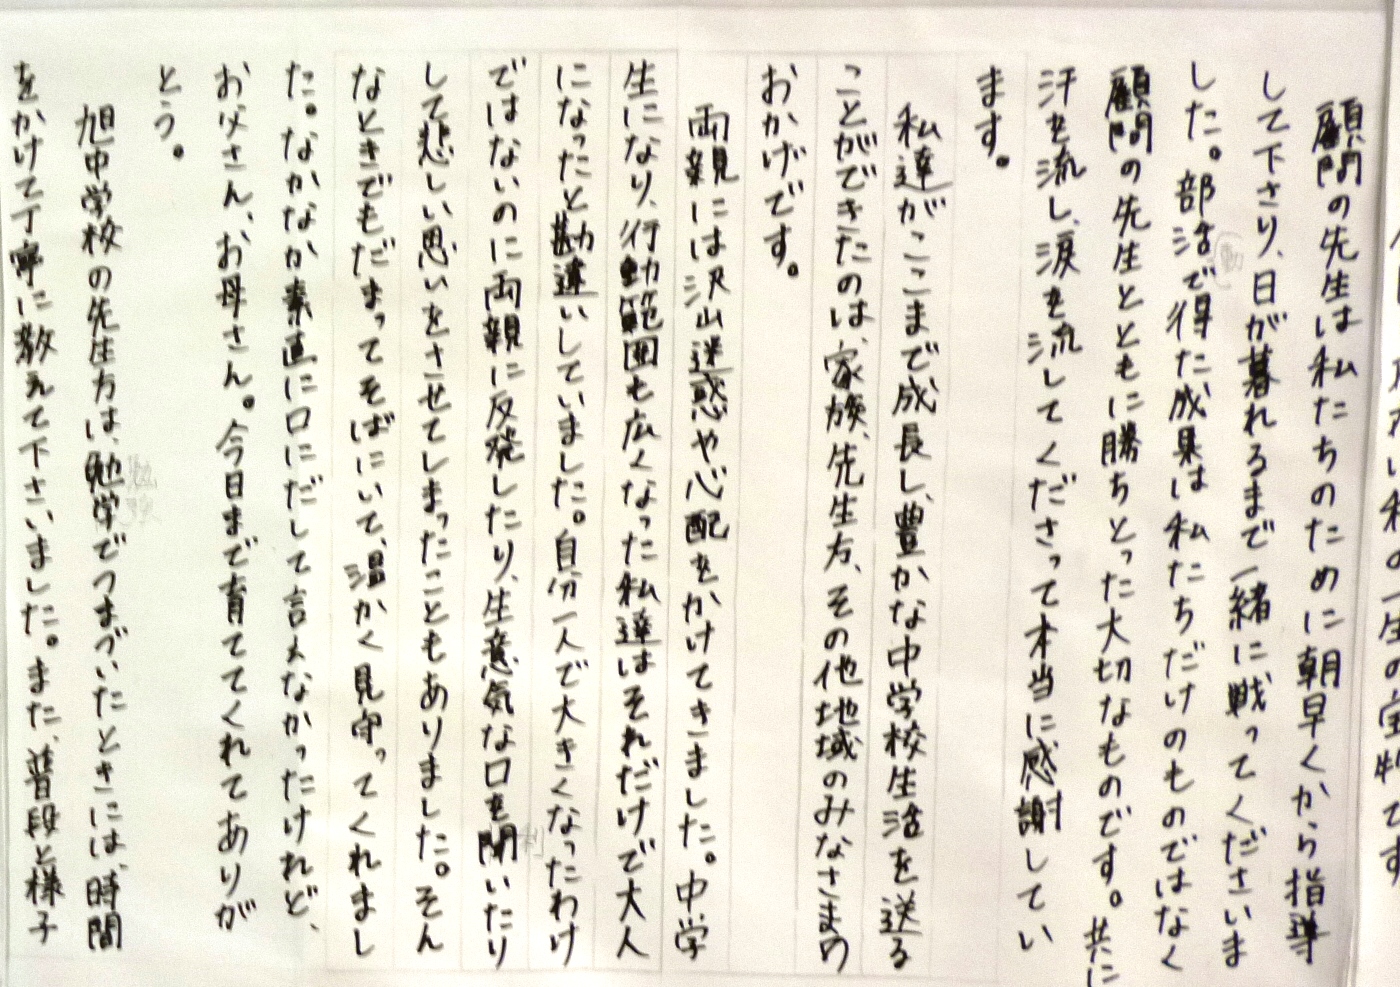 い私の一生の宝物です
顧問の先生は私たちのために朝早くから指導
して下さり、日が暮れるまで一緒に戦ってくださいま
した。部活で得た成果は私たちだけのものではなく
顧問の先生とともに勝ちとった大切なものです。共に
汗を流し、涙を流してくださって本当に感謝してい
ます。
私達がここまで成長し、豊かな中学校生活を送る
ことができたのは、家族、先生方、その他地域のみなさまの
おかげです。
両親には沢山迷惑や心配をかけてきました。中学
生になり、行動範囲も広くなった私達はそれだけで大人
になったと勘違いしていました。自分一人で大きくなったわけ
ではないのに両親に反発したり、生意気な口を聞いたり
して悲しい思いをさせてしまったこともありました。そん
なときでもだまってそばにいて、温かく見守ってくれまし
た。なかなか素直に口にだして言えなかったけれど、
お父さん、お母さん。今日まで育ててくれてありが
とう。
旭中学校の先生方は、勉学でつまづいたときには、時間
をかけて丁寧に教えて下さいました。また、普段と様子